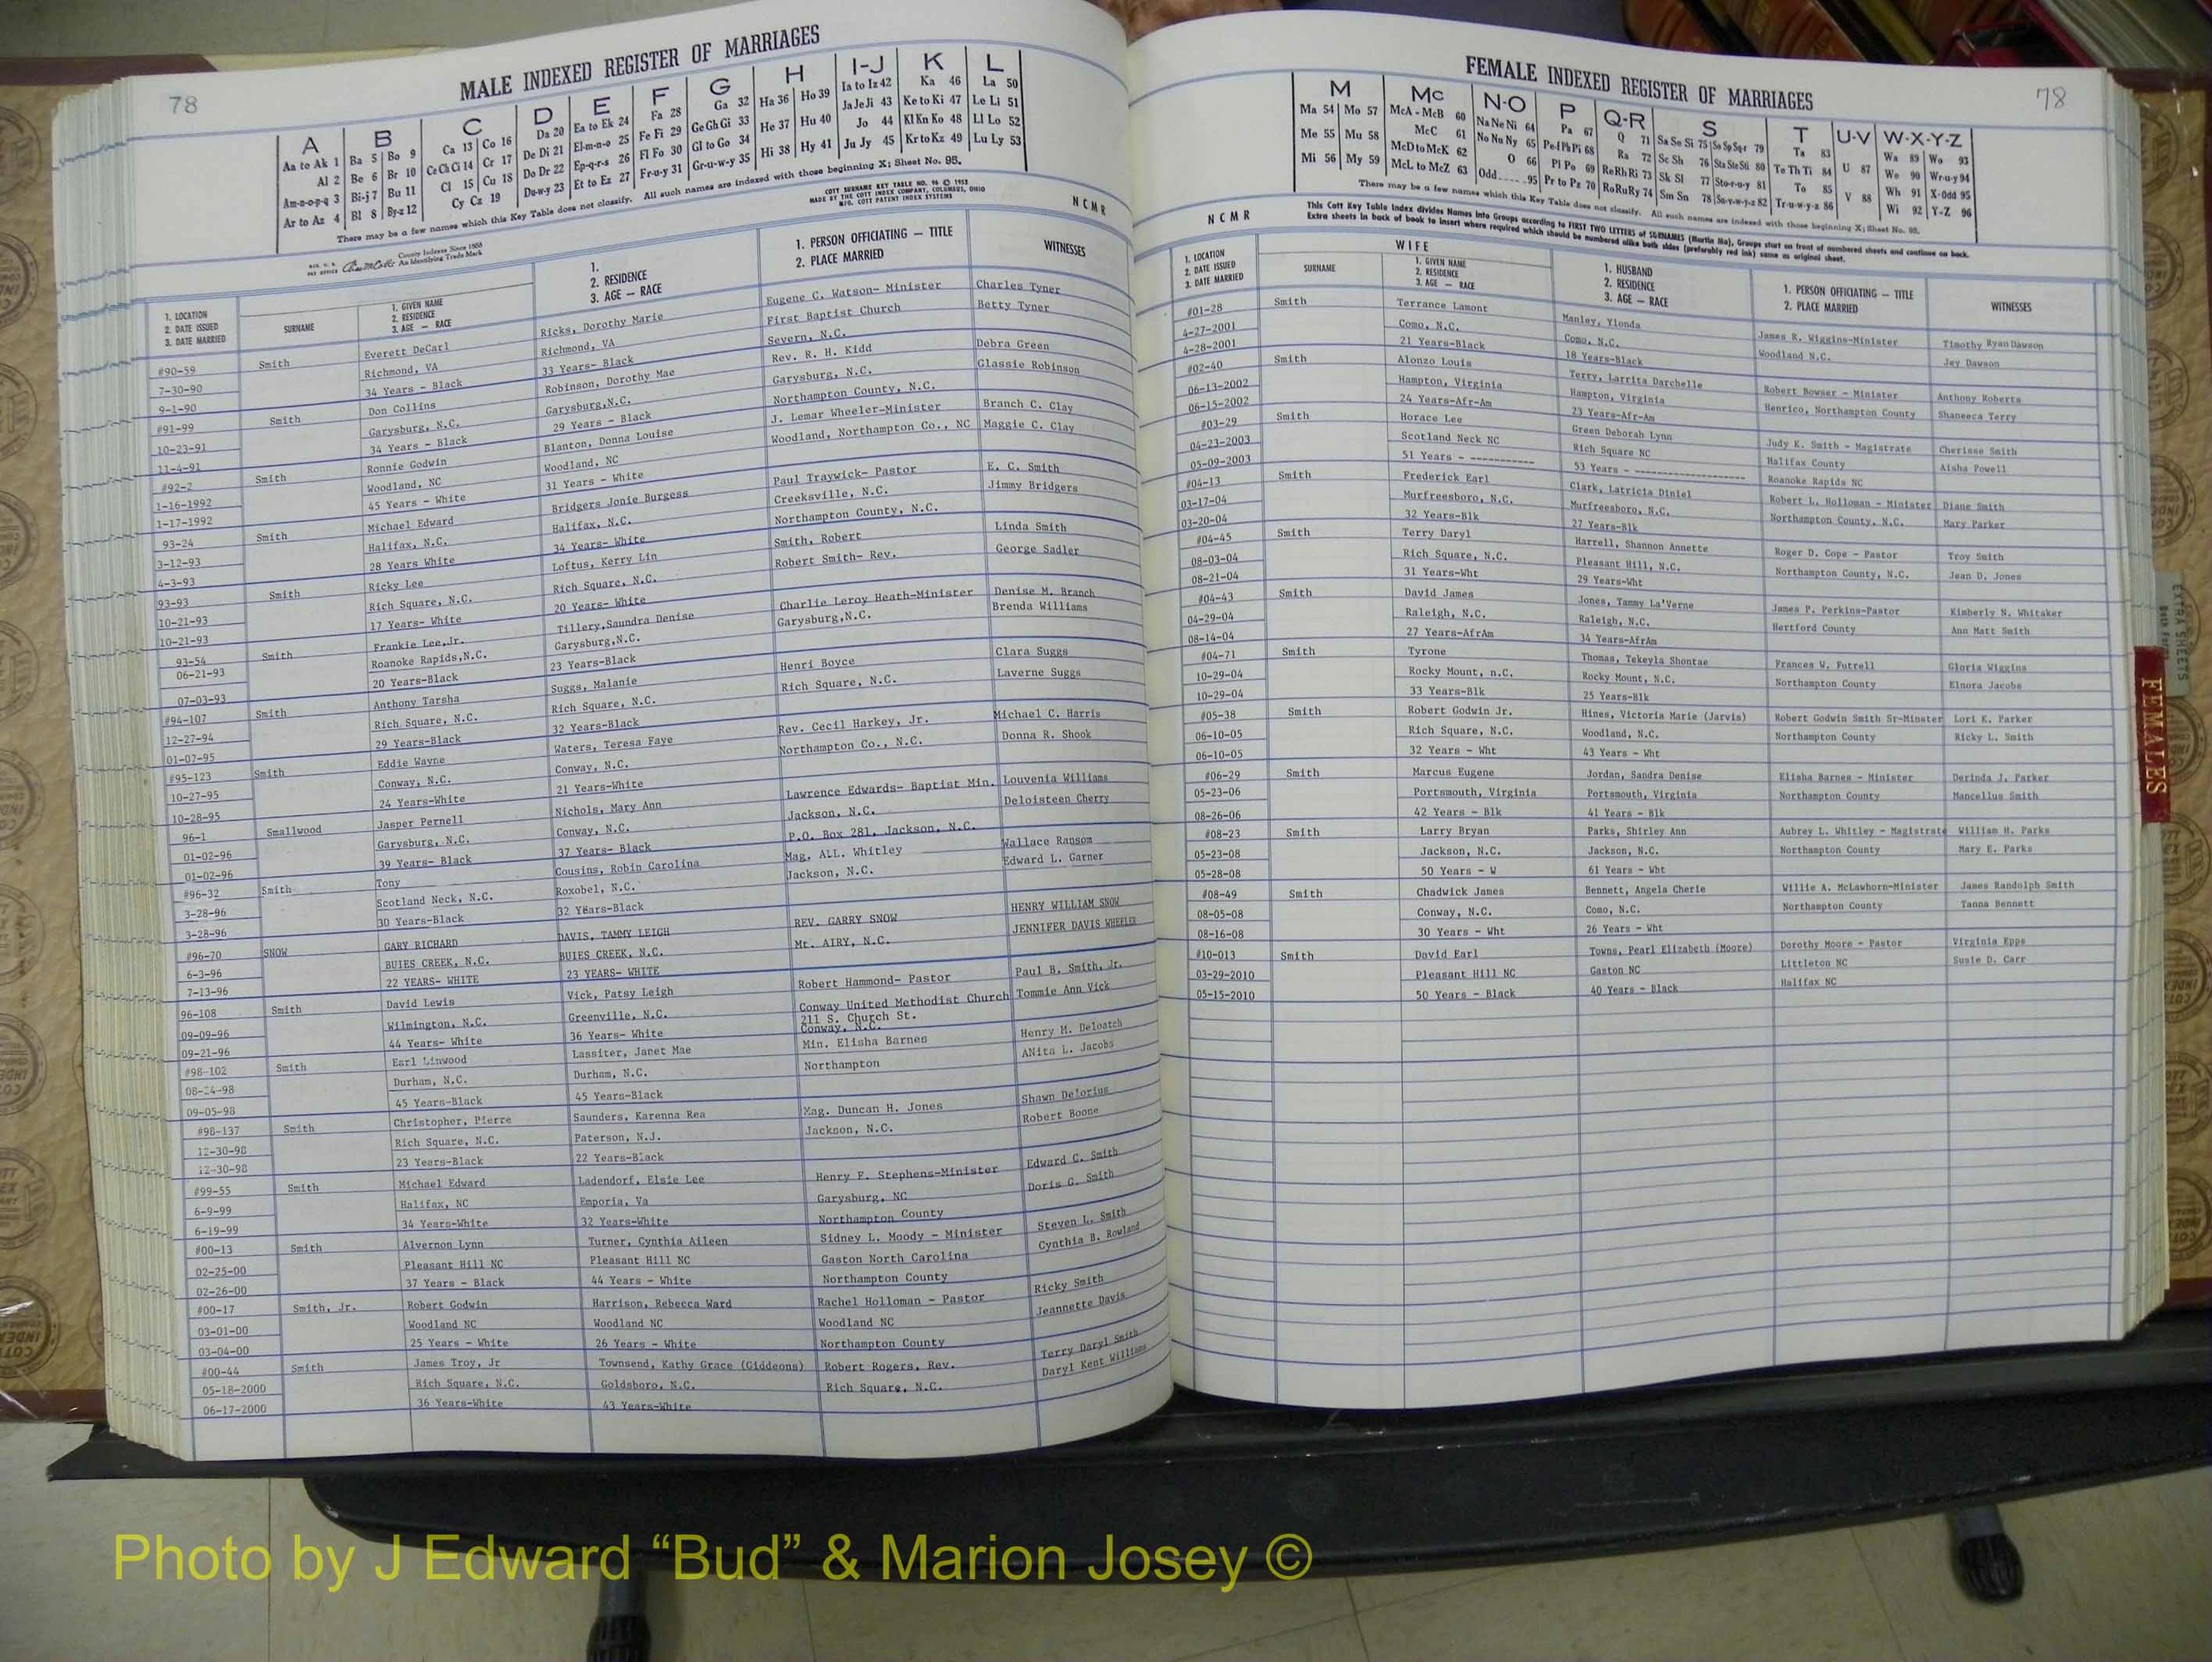 78
MALE INDEXED REGISTER OF MARRIAGES
A
Aa to Ak 1
Al 2
Am-n-o-p-q 3
Ar to Az 4
B
Ba 5 Bo 9
Be 6 Br 10
Bi-j 7 Bu 11
Bl 8 By-z 12
C
Ca 13 Co 16
Ce Ch Ci 14 Cr 17
Cl 15 Cu 18
Cy Cz 19
D
Da 20
De Di 21
Do Dr 22
Du-w-y 23
E
Ea to Ek 24
El-m-n-o 25
Ep-q-r-s 26
Et to Ez 27
F
Fa 28
Fe Fi 29
Fl Fo 30
Fr-u-y 31
G
Ga 32
Ge Gh Gi 33
Gl to Go 34
Gr-u-w-y 35
H
Ha 36 Ho 39
He 37 Hu 40
Hi 38 Hy 41
I-J
Ia to Iz 42
Ja Je Ji 43
Jo 44
Ju Jy 45
K
Ka 46
Ke to Ki 47
Kl Kn Ko 48
Kr to Kz 49
L
La 50
Le Li 51
Ll Lo 52
Lu Ly 53
There may be a few names which this Key Table does not classify. All such names are indexed with those beginning X; Sheet No. 95.
County Indexes Since 1888
An Identifying Trade Mark
COTT SURNAME KEY TABLE NO. 96 © 1953
MADE BY THE COTT INDEX COMPANY, COLUMBUS, OHIO
MFG. COTT PATENT INDEX SYSTEMS
N C M R
1. LOCATION
2. DATE ISSUED
3. DATE MARRIED
SURNAME
1. GIVEN NAME
2. RESIDENCE
3. AGE — RACE
1.
2. RESIDENCE
3. AGE — RACE
1. PERSON OFFICIATING — TITLE
2. PLACE MARRIED
WITNESSES
#90-59 Smith Everett DeCarl Ricks, Dorothy Marie Eugene C. Watson- Minister Charles Tyner
7-30-90 Richmond, VA Richmond, VA First Baptist Church Betty Tyner
9-1-90 34 Years - Black 33 Years- Black Severn, N.C.
#91-99 Smith Don Collins Robinson, Dorothy Mae Rev. R. H. Kidd Debra Green
10-23-91 Garysburg, N.C. Garysburg,N.C. Garysburg, N.C. Glassie Robinson
11-4-91 34 Years - Black 29 Years - Black Northampton County, N.C.
#92-2 Smith Ronnie Godwin Blanton, Donna Louise J. Lemar Wheeler-Minister Branch C. Clay
1-16-1992 Woodland, NC Woodland, NC Woodland, Northampton Co., NC Maggie C. Clay
1-17-1992 45 Years - White 31 Years - White
93-24 Smith Michael Edward Bridgers Jonie Burgess Paul Traywick- Pastor E. C. Smith
3-12-93 Halifax, N.C. Halifax, N.C. Creeksville, N.C. Jimmy Bridgers
4-3-93 28 Years White 34 Years- White Northampton County, N.C.
93-93 Smith Ricky Lee Loftus, Kerry Lin Smith, Robert Linda Smith
10-21-93 Rich Square, N.C. Rich Square, N.C. Robert Smith- Rev. George Sadler
10-21-93 17 Years- White 20 Years- White
93-54 Smith Frankie Lee,Jr. Tillery,Saundra Denise Charlie Leroy Heath-Minister Denise M. Branch
06-21-93 Roanoke Rapids,N.C. Garysburg,N.C. Garysburg,N.C. Brenda Williams
07-03-93 20 Years-Black 23 Years-Black
#94-107 Smith Anthony Tarsha Suggs, Malanie Henri Boyce Clara Suggs
12-27-94 Rich Square, N.C. Rich Square, N.C. Rich Square, N.C. Laverne Suggs
01-07-95 29 Years-Black 32 Years-Black
#95-123 Smith Eddie Wayne Waters, Teresa Faye Rev. Cecil Harkey, Jr. Michael C. Harris
10-27-95 Conway, N.C. Conway, N.C. Northampton Co., N.C. Donna R. Shook
10-28-95 24 Years-White 21 Years-White
96-1 Smallwood Jasper Pernell Nichols, Mary Ann Lawrence Edwards- Baptist Min. Louvenia Williams
01-02-96 Garysburg, N.C. Conway, N.C. Jackson, N.C. Deloisteen Cherry
01-02-96 39 Years- Black 37 Years- Black P.O. Box 281, Jackson, N.C.
#96-32 Smith Tony Cousins, Robin Carolina Mag, ALL. Whitley Wallace Ransom
3-28-96 Scotland Neck, N.C. Roxobel, N.C. Jackson, N.C. Edward L. Garner
3-28-96 30 Years-Black 32 Years-Black
#96-70 SNOW GARY RICHARD DAVIS, TAMMY LEIGH REV. GARRY SNOW HENRY WILLIAM SNOW
6-3-96 BUIES CREEK, N.C. BUIES CREEK, N.C. Mt. AIRY, N.C. JENNIFER DAVIS WHEELER
7-13-96 22 YEARS- WHITE 23 YEARS- WHITE
96-108 Smith David Lewis Vick, Patsy Leigh Robert Hammond- Pastor Paul B. Smith, Jr.
09-09-96 Wilmington, N.C. Greenville, N.C. Conway United Methodist Church Tommie Ann Vick
211 S. Church St.
09-21-96 44 Years- White 36 Years- White Conway, N.C.
#98-102 Smith Earl Linwood Lassiter, Janet Mae Min. Elisha Barnes Henry M. Deloatch
08-24-98 Durham, N.C. Durham, N.C. Northampton ANita L. Jacobs
09-05-98 45 Years-Black 45 Years-Black
#98-137 Smith Christopher, Pierre Saunders, Karenna Rea Mag. Duncan H. Jones Shawn De'lorius
12-30-98 Rich Square, N.C. Paterson, N.J. Jackson, N.C. Robert Boone
12-30-98 23 Years-Black 22 Years-Black
#99-55 Smith Michael Edward Ladendorf, Elsie Lee Henry F. Stephens-Minister Edward C. Smith
6-9-99 Halifax, NC Emporia, Va Garysburg, NC Doris G. Smith
6-19-99 34 Years-White 32 Years-White Northampton County
#00-13 Smith Alvernon Lynn Turner, Cynthia Aileen Sidney L. Moody - Minister Steven L. Smith
02-25-00 Pleasant Hill NC Pleasant Hill NC Gaston North Carolina Cynthia B. Rowland
02-26-00 37 Years - Black 44 Years - White Northampton County
#00-17 Smith, Jr. Robert Godwin Harrison, Rebecca Ward Rachel Holloman - Pastor Ricky Smith
03-01-00 Woodland NC Woodland NC Woodland NC Jeannette Davis
03-04-00 25 Years - White 26 Years - White Northampton County
#00-44 Smith James Troy, Jr Townsend, Kathy Grace (Giddeons) Robert Rogers, Rev. Terry Daryl Smith
05-18-2000 Rich Square, N.C. Goldsboro, N.C. Rich Square, N.C. Daryl Kent Williams
06-17-2000 36 Years-White 43 Years-White
FEMALE INDEXED REGISTER OF MARRIAGES
78
M
Ma 54 Mo 57
Me 55 Mu 58
Mi 56 My 59
Mc
McA - McB 60
McC 61
McD to McK 62
McL to McZ 63
N-O
Na Ne Ni 64
No Nu Ny 65
O 66
Odd 95
P
Pa 67
Pe-f Ph Pi 68
Pl Po 69
Pr to Pz 70
Q-R
Q 71
Ra 72
Re Rh Ri 73
Ro Ru Ry 74
S
Sa Se Si 75 So Sp Sq-r 79
Sc Sh 76 Sta Ste Sti 80
Sk Sl 77 Sto-r-u-y 81
Sm Sn 78 Su-v-w-y-z 82
T
Ta 83
Te Th Ti 84
To 85
Tr-u-w-y-z 86
U-V
U 87
V 88
W-X-Y-Z
Wa 89 Wo 93
We 90 Wr-u-y 94
Wh 91 X-Odd 95
Wi 92 Y-Z 96
There may be a few names which this Key Table does not classify. All such names are indexed with those beginning X; Sheet No. 95.
This Cott Key Table Index divides Names into Groups according to FIRST TWO LETTERS of SURNAMES (Martin Ma), Groups start on front of numbered sheets and continue on back.
Extra sheets in back of book to insert where required which should be numbered alike both sides (preferably red ink) same as original sheet.
N C M R
1. LOCATION
2. DATE ISSUED
3. DATE MARRIED
WIFE
SURNAME
1. GIVEN NAME
2. RESIDENCE
3. AGE — RACE
1. HUSBAND
2. RESIDENCE
3. AGE — RACE
1. PERSON OFFICIATING — TITLE
2. PLACE MARRIED
WITNESSES
#01-28 Smith Terrance Lamont Manley, Ylonda James R. Wiggins-Minister Timothy Ryan Dawson
4-27-2001 Como, N.C. Como, N.C. Woodland N.C. Jey Dawson
4-28-2001 21 Years-Black 18 Years-Black
#02-40 Smith Alonzo Louis Terry, Larrita Darchelle Robert Bowser - Minister Anthony Roberts
06-13-2002 Hampton, Virginia Hampton, Virginia Henrico, Northampton County Shaneeca Terry
06-15-2002 24 Years-Afr-Am 23 Years-Afr-Am
#03-29 Smith Horace Lee Green Deborah Lynn Judy K. Smith - Magistrate Cherisse Smith
04-23-2003 Scotland Neck NC Rich Square NC Halifax County Aisha Powell
05-09-2003 51 Years - ----------- 53 Years - ------------------- Roanoke Rapids NC
#04-13 Smith Frederick Earl Clark, Latricia Diniel Robert L. Holloman - Minister Diane Smith
03-17-04 Murfreesboro, N.C. Murfreesboro, N.C. Northampton County, N.C. Mary Parker
03-20-04 32 Years-Blk 27 Years-Blk
#04-45 Smith Terry Daryl Harrell, Shannon Annette Roger D. Cope - Pastor Troy Smith
08-03-04 Rich Square, N.C. Pleasant Hill, N.C. Northampton County, N.C. Jean D. Jones
08-21-04 31 Years-Wht 29 Years-Wht
#04-43 Smith David James Jones, Tammy La'Verne James P. Perkins-Pastor Kimberly N. Whitaker
04-29-04 Raleigh, N.C. Raleigh, N.C. Hertford County Ann Matt Smith
08-14-04 27 Years-AfrAm 34 Years-AfrAm
#04-71 Smith Tyrone Thomas, Tekeyla Shontae Frances W. Futrell Gloria Wiggins
10-29-04 Rocky Mount, n.C. Rocky Mount, N.C. Northampton County Elnora Jacobs
10-29-04 33 Years-Blk 25 Years-Blk
#05-38 Smith Robert Godwin Jr. Hines, Victoria Marie (Jarvis) Robert Godwin Smith Sr-Minster Lori K. Parker
06-10-05 Rich Square, N.C. Woodland, N.C. Northampton County Ricky L. Smith
06-10-05 32 Years - Wht 43 Years - Wht
#06-29 Smith Marcus Eugene Jordan, Sandra Denise Elisha Barnes - Minister Derinda J. Parker
05-23-06 Portsmouth, Virginia Portsmouth, Virginia Northampton County Mancellus Smith
08-26-06 42 Years - Blk 41 Years - Blk
#08-23 Smith Larry Bryan Parks, Shirley Ann Aubrey L. Whitley - Magistrate William H. Parks
05-23-08 Jackson, N.C. Jackson, N.C. Northampton County Mary E. Parks
05-28-08 50 Years - W 61 Years - Wht
#08-49 Smith Chadwick James Bennett, Angela Cherie Willie A. McLawhorn-Minister James Randolph Smith
08-05-08 Conway, N.C. Como, N.C. Northampton County Tanna Bennett
08-16-08 30 Years - Wht 26 Years - Wht
#10-013 Smith David Earl Towns, Pearl Elizabeth (Moore) Dorothy Moore - Pastor Virginia Epps
03-29-2010 Pleasant Hill NC Gaston NC Littleton NC Susie D. Carr
05-15-2010 50 Years - Black 40 Years - Black Halifax NC
EXTRA SHEETS
FEMALES
Photo by J Edward “Bud” & Marion Josey ©